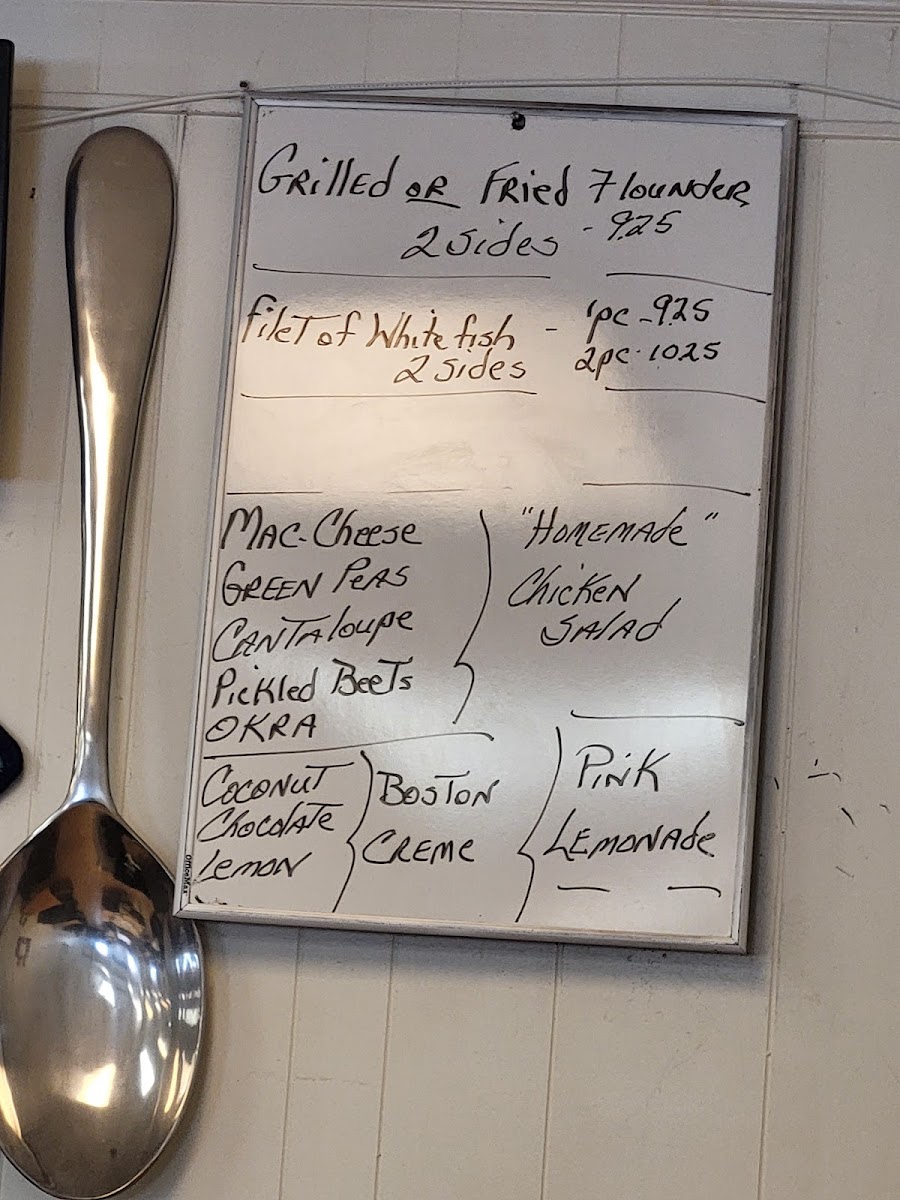 Grilled OR Fried Flounder
2 Sides - 9.25
Filet of White fish - 1pc - 9.25
2 Sides 2pc - 10.25
Mac-Cheese
Green Peas
Cantaloupe
Pickled Beets
OKRA
"Homemade"
Chicken
Salad
Coconut
Chocolate
Lemon
Boston
Creme
Pink
Lemonade
OfficeMax